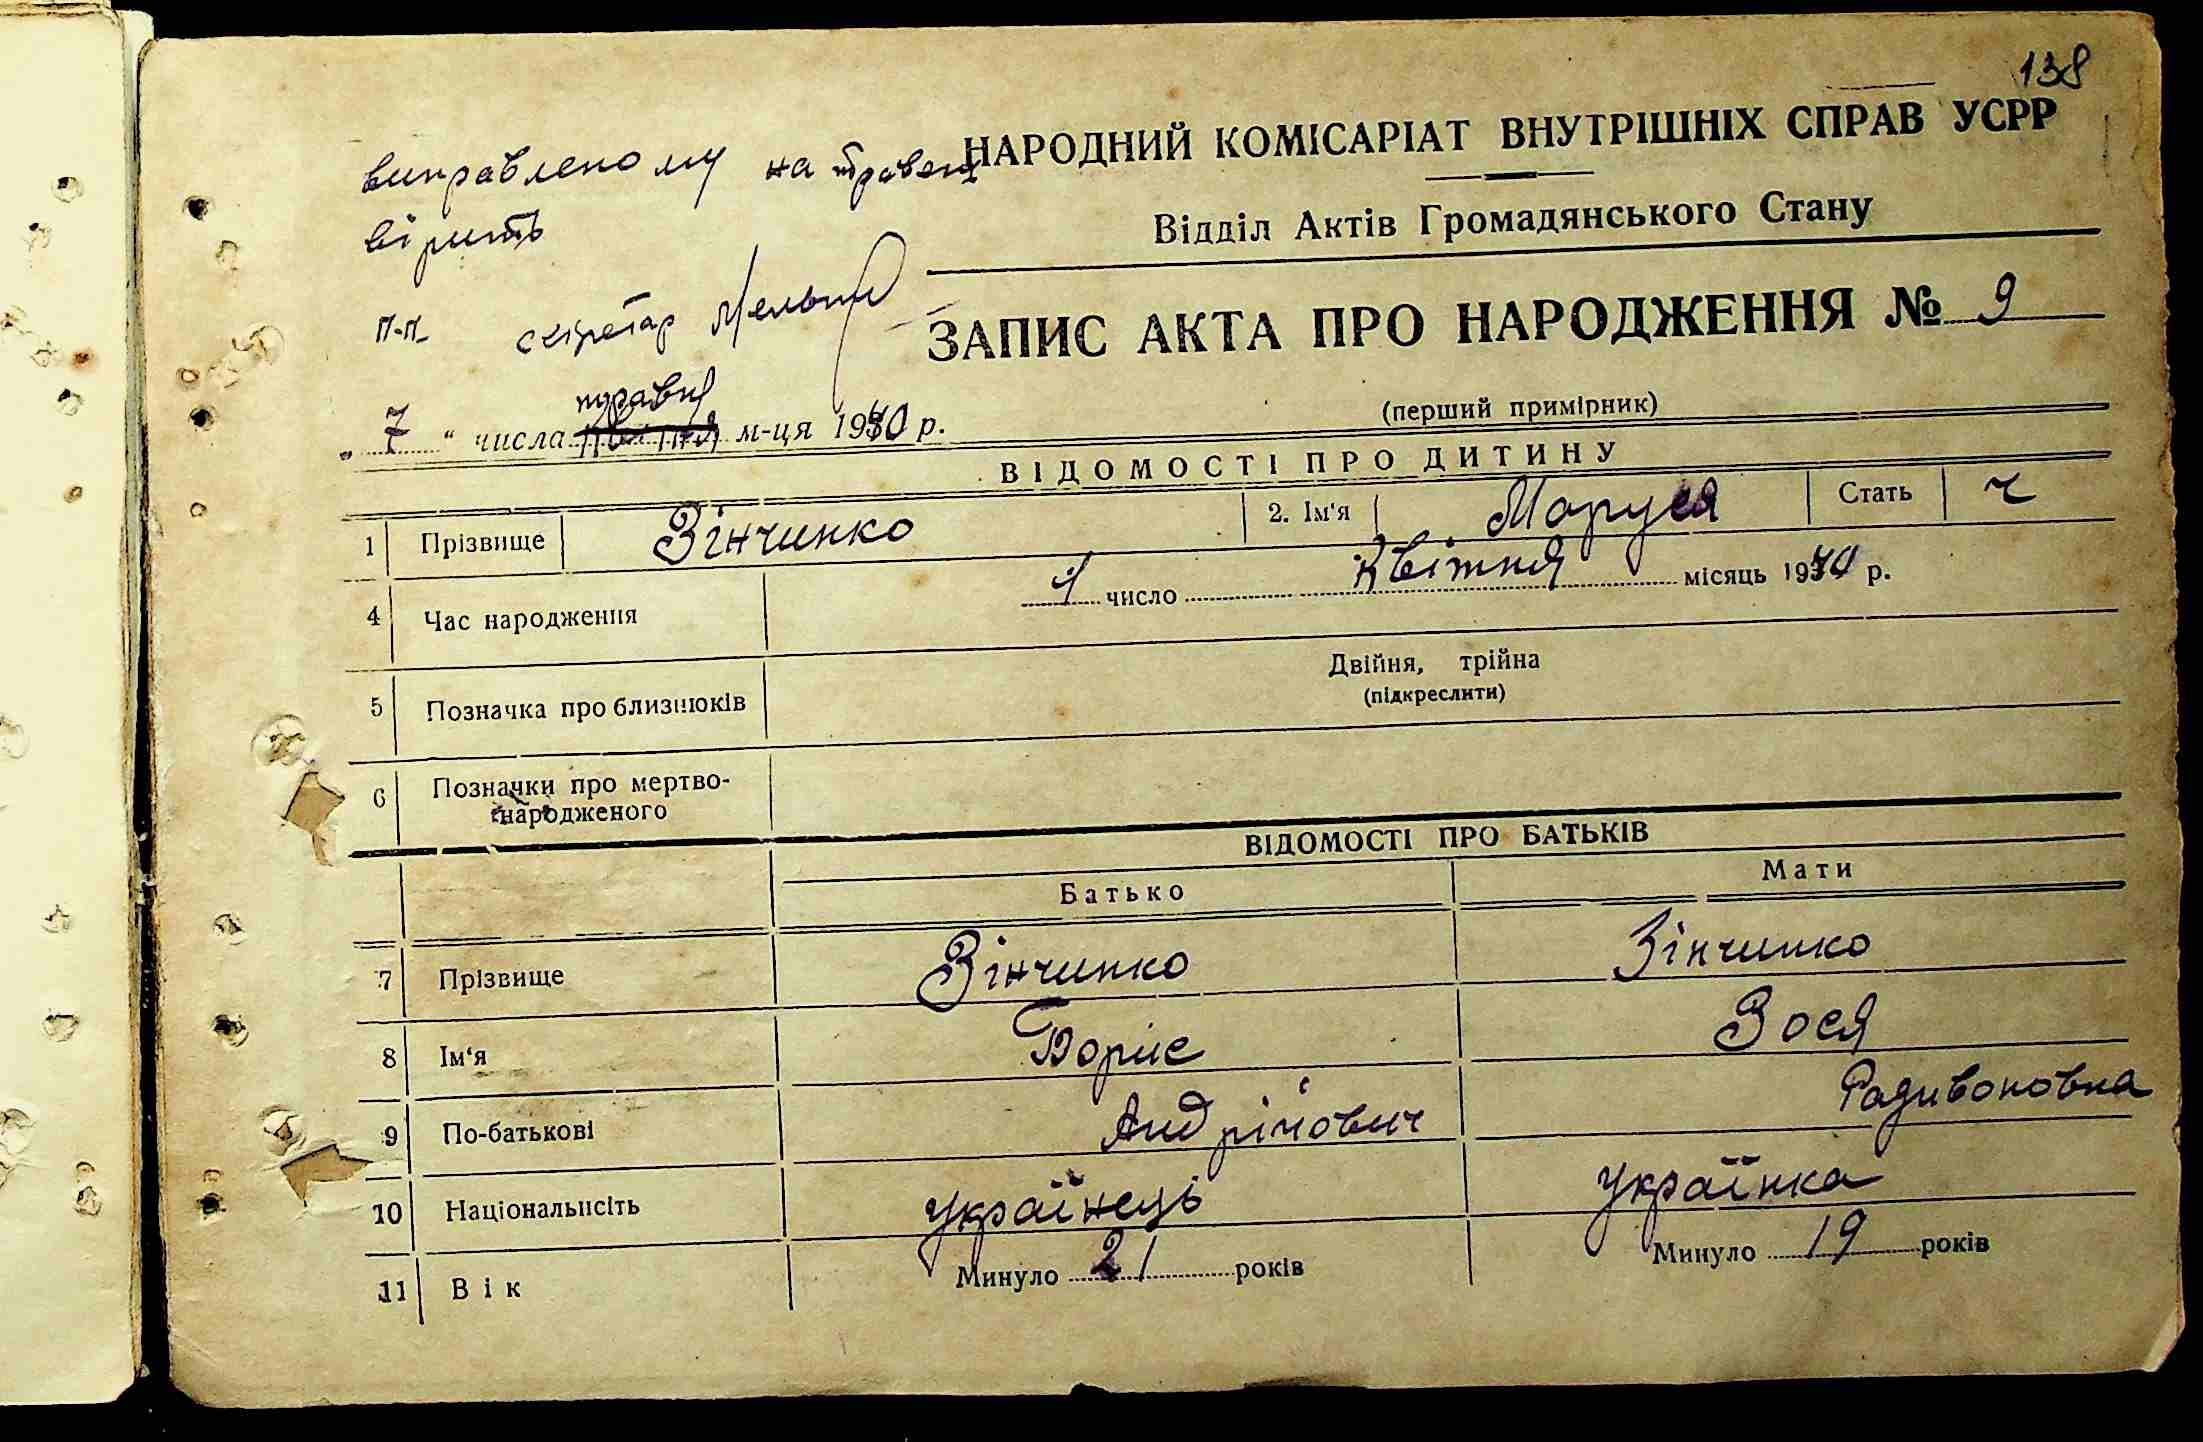 138
НАРОДНИЙ КОМІСАРІАТ ВНУТРІШНІХ СПРАВ УСРР
виправленому на травень
вірить
Відділ Актів Громадянського Стану
п-п. секретар
ЗАПИС АКТА ПРО НАРОДЖЕННЯ № 9
(перший примірник)
травня
„ 7 “ числа квітня м-ця 1940 р.
ВІДОМОСТІ ПРО ДИТИНУ
1 Прізвище Зінчинко 2. Ім'я Маруся Стать ч
4 Час народження 4 число Квітня місяць 1940 р.
5 Позначка про близнюків Двійня, трійна
(підкреслити)
6 Позначки про мертво-
народженого
ВІДОМОСТІ ПРО БАТЬКІВ
Батько Мати
7 Прізвище Зінчинко Зінчинко
8 Ім'я Борис Зося
9 По-батькові Андрійович Радивоновна
10 Національність Українець Українка
11 Вік Минуло 21 років Минуло 19 років